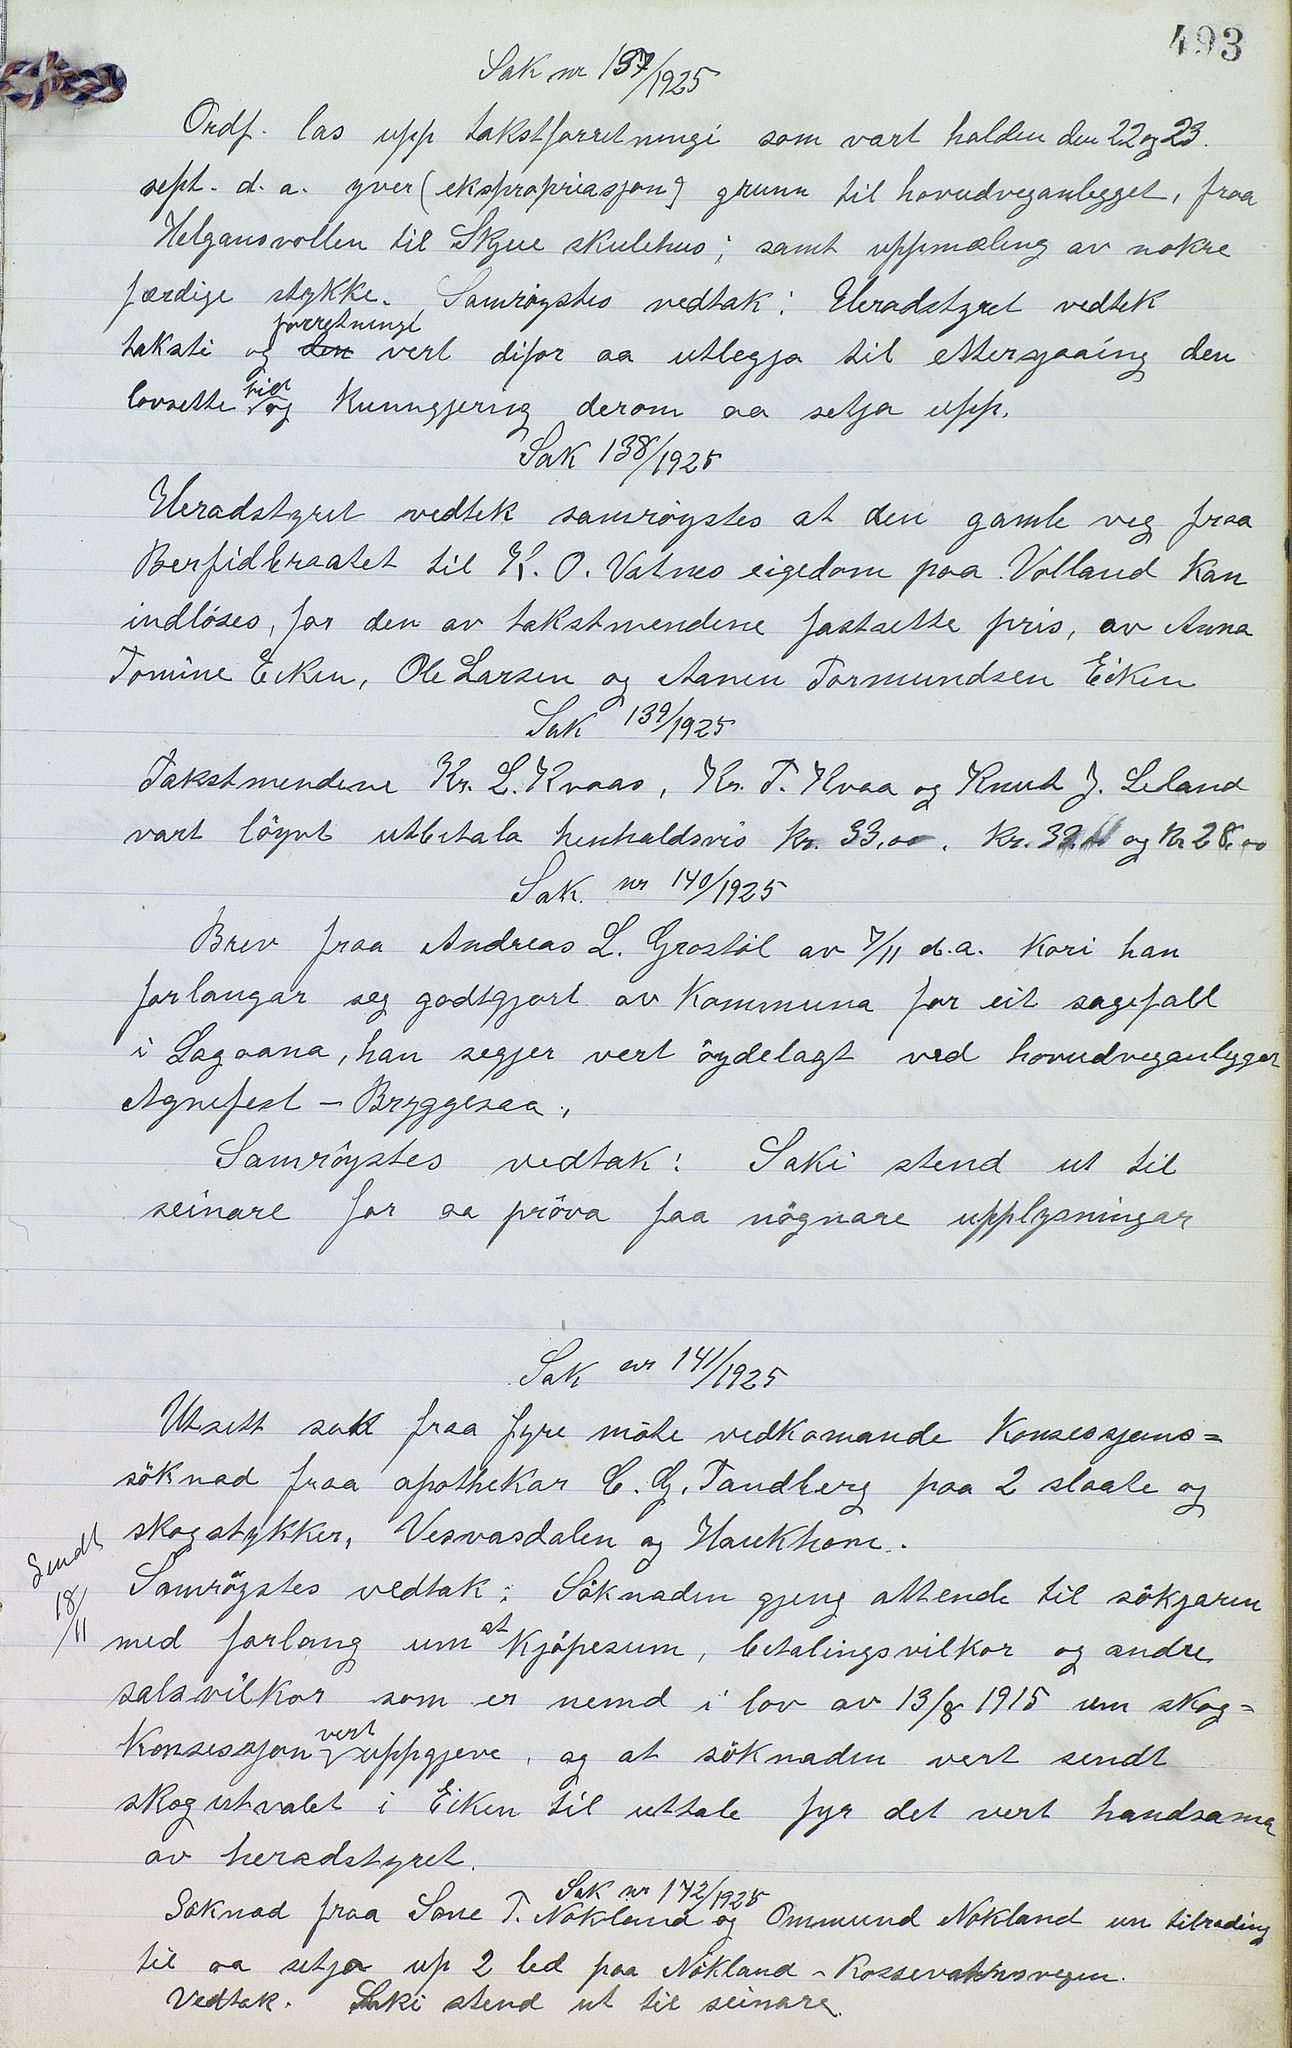 493
Sak nr 137/1925
Ordf. las upp takstforretningi som vart halden den 22 og 23.
sept. d. a. yver (ekspropriasjon) grunn til hovudveganlegget, fraa
Helgansvollen til Skjue skulehus; samt uppmæling av nokre
færdige stykke. Samröystes vedtak: Heradstyret vedtek
forretningi
taksti og den vert difor aa utlegja til ettersjaaing den
tid
lovsette og Kunngjering derom aa setja upp.
Sak 138/1925
Heradstyret vedtek samröystes at den gamle veg fraa
til K. O. Vatnes eigedom paa Volland kan
indlöses, for den av takstmendene fastsette pris, av Anna
Tomine Eiken, Ole Larsen og Aanen Tormundsen Eiken
Sak 139/1925
Takstmendene Kr. L. Kvaas, Kr. T. Kvaa og Knut J. Leland
vart löyvt utbetala henhaldsvis kr. 33.00, kr. og kr 28.00
Sak. nr 140/1925
Brev fraa Andreas L. Grostöl av 7/11 d.a. Kori han
forlangar seg godtgjort av Kommuna for eit sagefall
i Lagaana, han segjer vert öydelagt ved hovudveganlegget
Agnefest - Bryggesaa.,
Samröystes vedtak: Saki stend ut til
seinare for aa pröva faa nögnare upplysningar
Sak nr 141/1925
Utsett sak fraa fyre möte vedkomande Konsesjons=
söknad fraa apothekar C. G. Tandberg paa 2 slaate og
skogstykker, Vesvasdalen og Haukhom.
Sendt
18/11
Samröystes vedtak: Söknaden gjeng attende til sökjaren
at
med forlang um Kjöpesum, betalingsvilkor og andre
salsvilkor som er nemd i lov av 13/8 1915 um skog=
vert
Konsessjon uppgjeve, og at söknaden vert sendt
skogutvalet i Eiken til uttale fyr det vert handsama
av heradstyret.
Sak nr 142/1925
Söknad fraa Sone T. Nökland og Ommund Nökland um tilraading
til aa setja up 2 led paa Nökland - Rossevatnsvegen.
Vedtak. Saki stend ut til seinare.